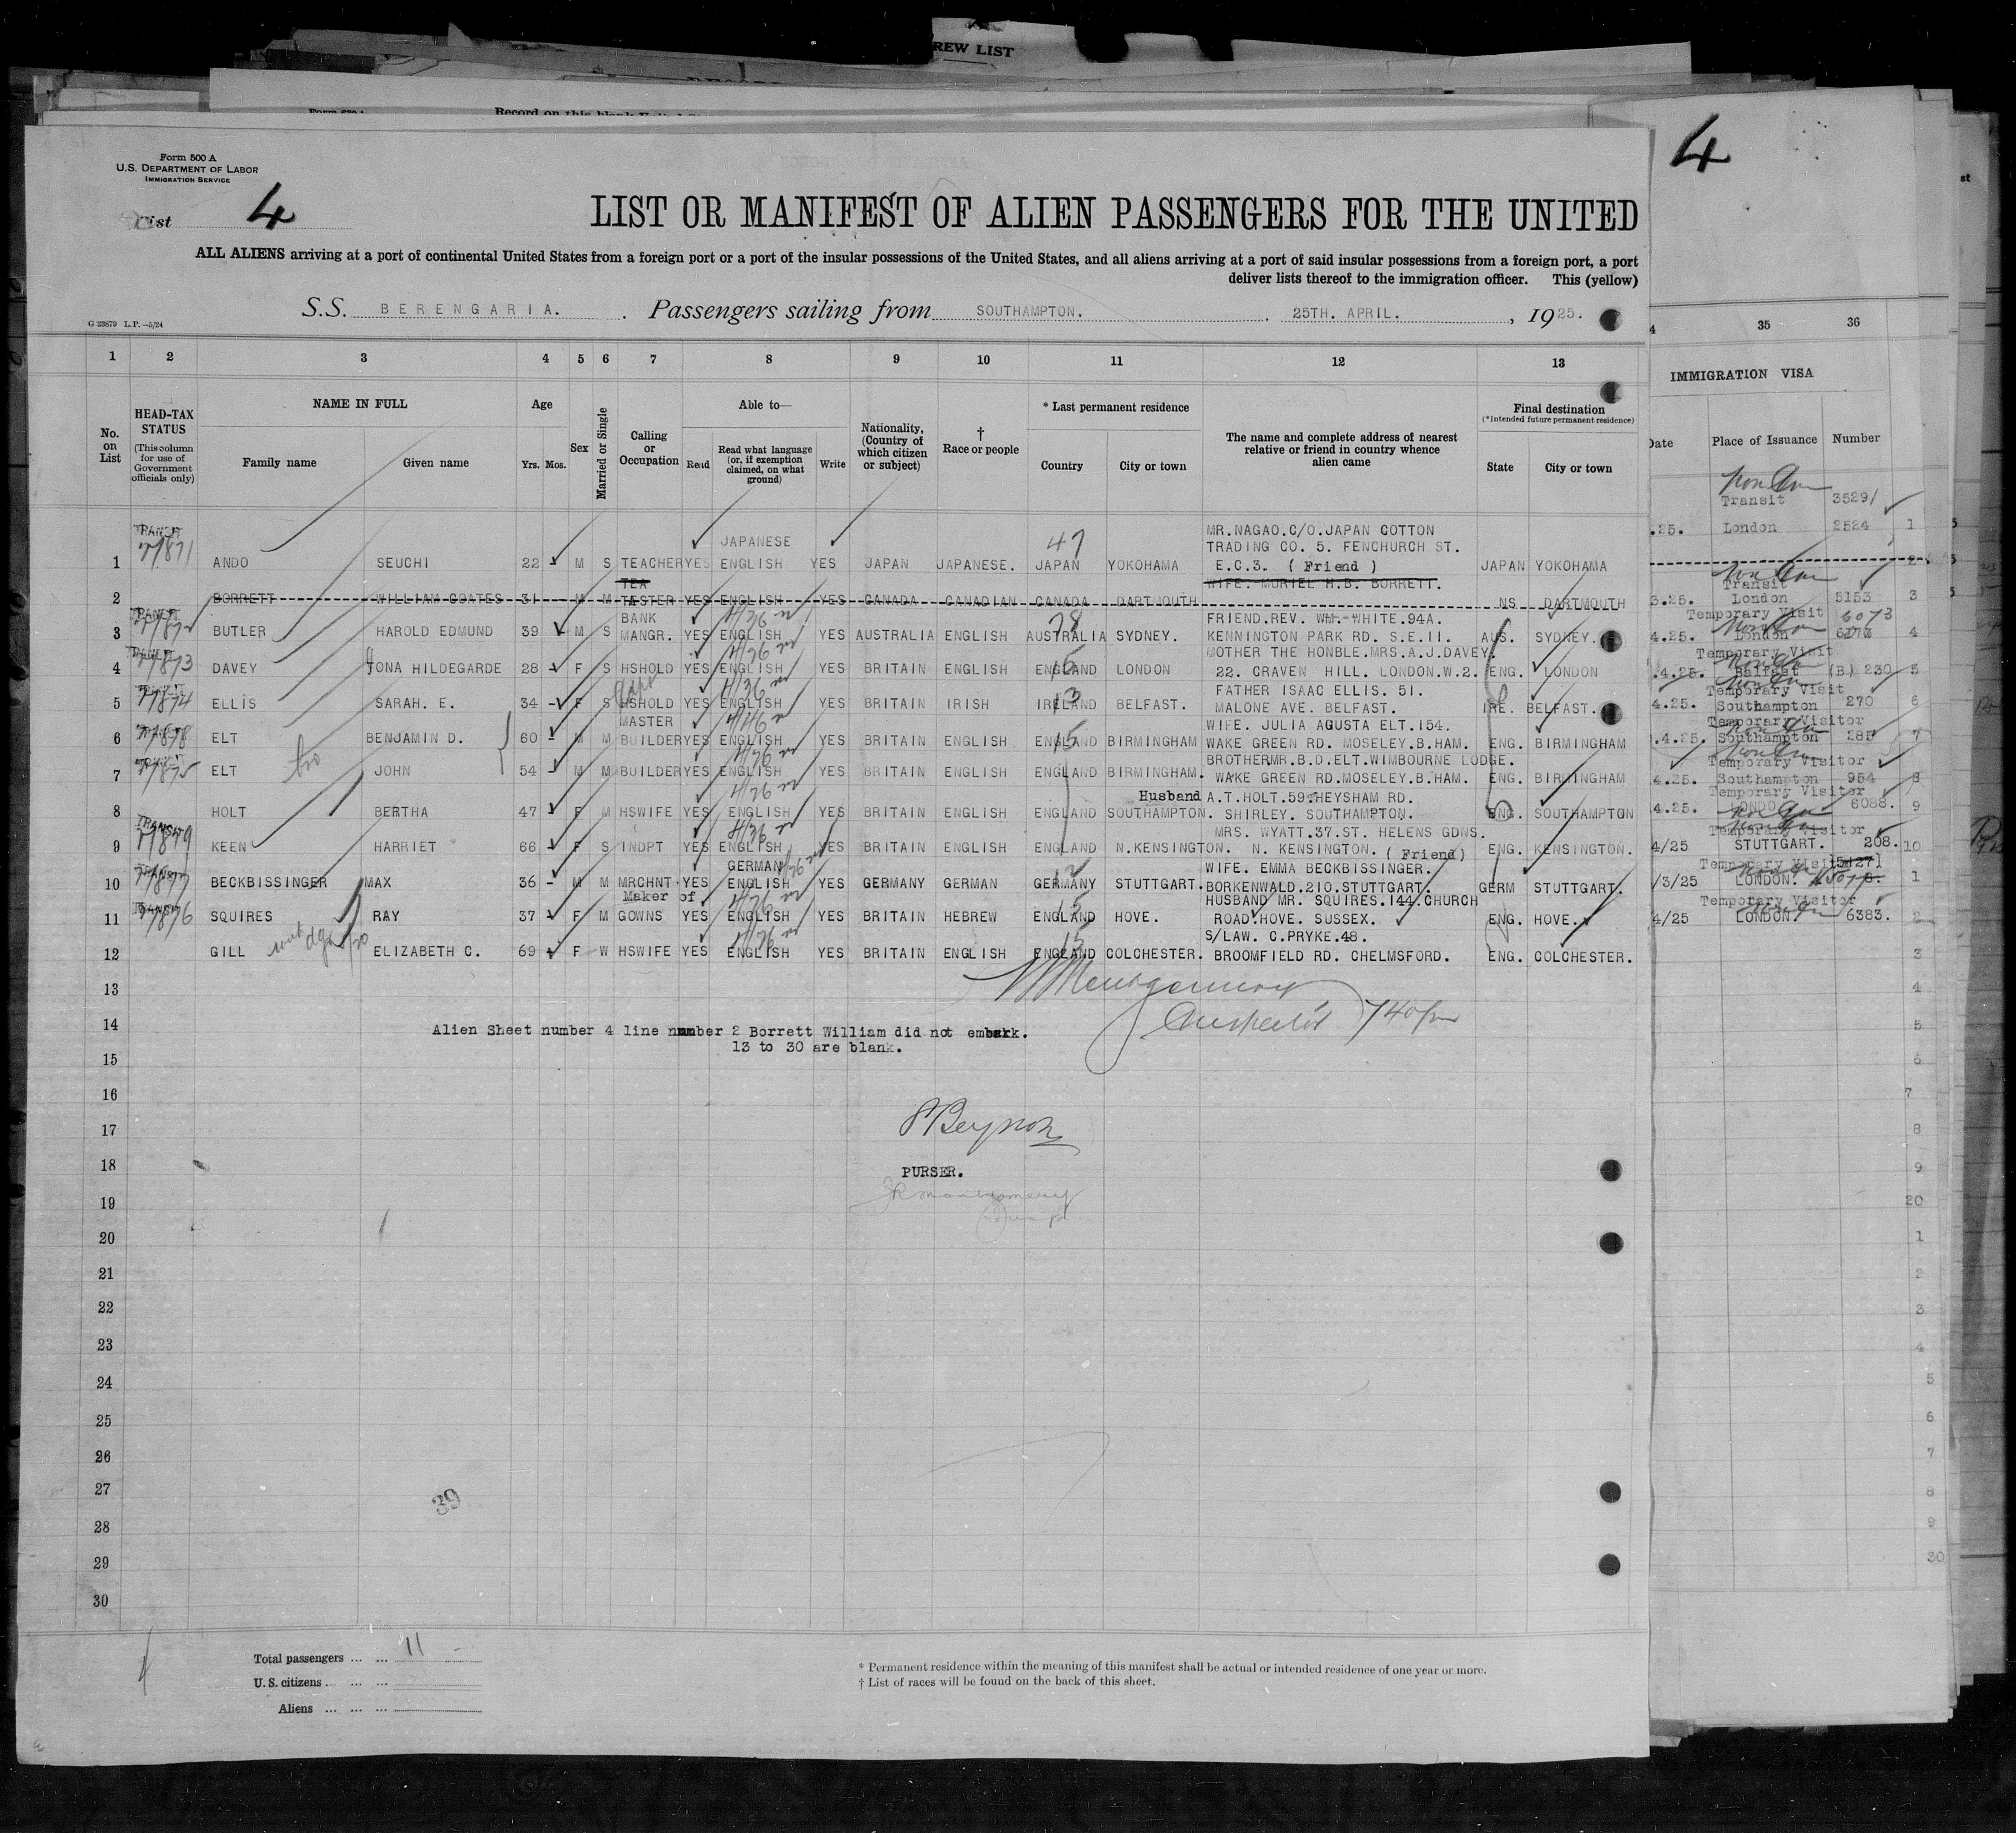 REW LIST
Record on this blank United St
Form 500 A
U.S. DEPARTMENT OF LABOR
IMMIGRATION SERVICE
List 4
LIST OR MANIFEST OF ALIEN PASSENGERS FOR THE UNITED
ALL ALIENS arriving at a port of continental United States from a foreign port or a port of the insular possessions of the United States, and all aliens arriving at a port of said insular possessions from a foreign port, a port
deliver lists thereof to the immigration officer. This (yellow)
S.S. BERENGARIA. Passengers sailing from SOUTHAMPTON. 25TH. APRIL. , 1925.
G 23879 L.P.—5/24
1 2 3 4 5 6 7 8 9 10 11 12 13
No. on List
HEAD-TAX STATUS (This column for use of Government officials only)
NAME IN FULL
Family name Given name
Age Yrs. Mos.
Sex
Married or Single
Calling or Occupation
Able to—
Read Read what language (or, if exemption claimed, on what ground) Write
Nationality, (Country of which citizen or subject)
† Race or people
* Last permanent residence
Country City or town
The name and complete address of nearest relative or friend in country whence alien came
Final destination
(*Intended future permanent residence)
State City or town
TRANSIT JAPANESE 47 MR.NAGAO.C/O.JAPAN COTTON
TRADING CO. 5. FENCHURCH ST.
1 ANDO SEUCHI 22 M S TEACHER YES ENGLISH YES JAPAN JAPANESE. JAPAN YOKOHAMA E.C.3. ( Friend ) JAPAN YOKOHAMA
TEA WIFE. MURIEL H.B. BORRETT.
2 BORRETT WILLIAM COATES 31 M M TASTER YES ENGLISH YES CANADA CANADIAN CANADA DARTMOUTH NS DARTMOUTH
BANK FRIEND.REV. WM.-WHITE.94A.
3 BUTLER HAROLD EDMUND 39 M S MANGR. YES ENGLISH YES AUSTRALIA ENGLISH AUSTRALIA SYDNEY. KENNINGTON PARK RD. S.E.11. AUS. SYDNEY.
MOTHER THE HONBLE.MRS.A.J.DAVEY.
4 DAVEY IONA HILDEGARDE 28 F S HSHOLD YES ENGLISH YES BRITAIN ENGLISH ENGLAND LONDON 22. CRAVEN HILL. LONDON.W.2. ENG. LONDON
FATHER ISAAC ELLIS. 51.
5 ELLIS SARAH. E. 34 F S HSHOLD YES ENGLISH YES BRITAIN IRISH IRELAND BELFAST. MALONE AVE. BELFAST. IRE. BELFAST.
MASTER WIFE. JULIA AGUSTA ELT.154.
6 ELT BENJAMIN D. 60 M M BUILDER YES ENGLISH YES BRITAIN ENGLISH ENGLAND BIRMINGHAM WAKE GREEN RD. MOSELEY.B.HAM. ENG. BIRMINGHAM
BROTHERMR.B.D.ELT.WIMBOURNE LODGE.
7 ELT JOHN 54 M M BUILDER YES ENGLISH YES BRITAIN ENGLISH ENGLAND BIRMINGHAM. WAKE GREEN RD.MOSELEY.B.HAM. ENG. BIRMINGHAM
Husband A.T.HOLT.59.HEYSHAM RD.
8 HOLT BERTHA 47 F M HSWIFE YES ENGLISH YES BRITAIN ENGLISH ENGLAND SOUTHAMPTON. SHIRLEY. SOUTHAMPTON. ENG. SOUTHAMPTON
TRANSIT MRS. WYATT.37.ST. HELENS GDNS.
9 KEEN HARRIET 66 F S INDPT YES ENGLISH YES BRITAIN ENGLISH ENGLAND N.KENSINGTON. N. KENSINGTON. ( Friend) ENG. KENSINGTON.
GERMAN WIFE. EMMA BECKBISSINGER.
10 BECKBISSINGER MAX 36 M M MRCHNT. YES ENGLISH YES GERMANY GERMAN GERMANY STUTTGART. BORKENWALD.210.STUTTGART. GERM STUTTGART.
Maker of HUSBAND MR. SQUIRES.144.CHURCH
11 SQUIRES RAY 37 F M GOWNS YES ENGLISH YES BRITAIN HEBREW ENGLAND HOVE. ROAD.HOVE. SUSSEX. ENG. HOVE.
S/LAW. C.PRYKE.48.
12 GILL ELIZABETH C. 69 F W HSWIFE YES ENGLISH YES BRITAIN ENGLISH ENGLAND COLCHESTER. BROOMFIELD RD. CHELMSFORD. ENG. COLCHESTER.
13
Montgomery
14
Alien Sheet number 4 line number 2 Borrett William did not embark.
13 to 30 are blank.
Inspector 740pm
15
16
17
Beynon
18
PURSER.
19
Montgomery
20
21
22
23
24
25
26
27
39
28
29
30
Total passengers ... ... 11
U.S. citizens ... ... ...
Aliens ... ... ...
* Permanent residence within the meaning of this manifest shall be actual or intended residence of one year or more.
† List of races will be found on the back of this sheet.
4
35 36
IMMIGRATION VISA
Date Place of Issuance Number
Transit 3529/
.25. London 2524 1
Transit
3.25. London 5153 3
Temporary Visit 6073
4.25. London 6173 4
Temporary Visit
.4.25. Belfast (B) 230 5
Temporary Visit
4.25. Southampton 270 6
Temporary Visitor
.4.25. Southampton 285 7
Temporary Visitor
4.25. Southampton 954 8
Temporary Visitor
4.25. LONDON 6088. 9
Temporary Visitor
4/25 STUTTGART. 208. 10
Temporary Visit
/3/25 LONDON. 1
Temporary Visitor
4/25 LONDON 6383. 2
3
4
5
6
7
8
9
20
1
2
3
4
5
6
7
8
9
30